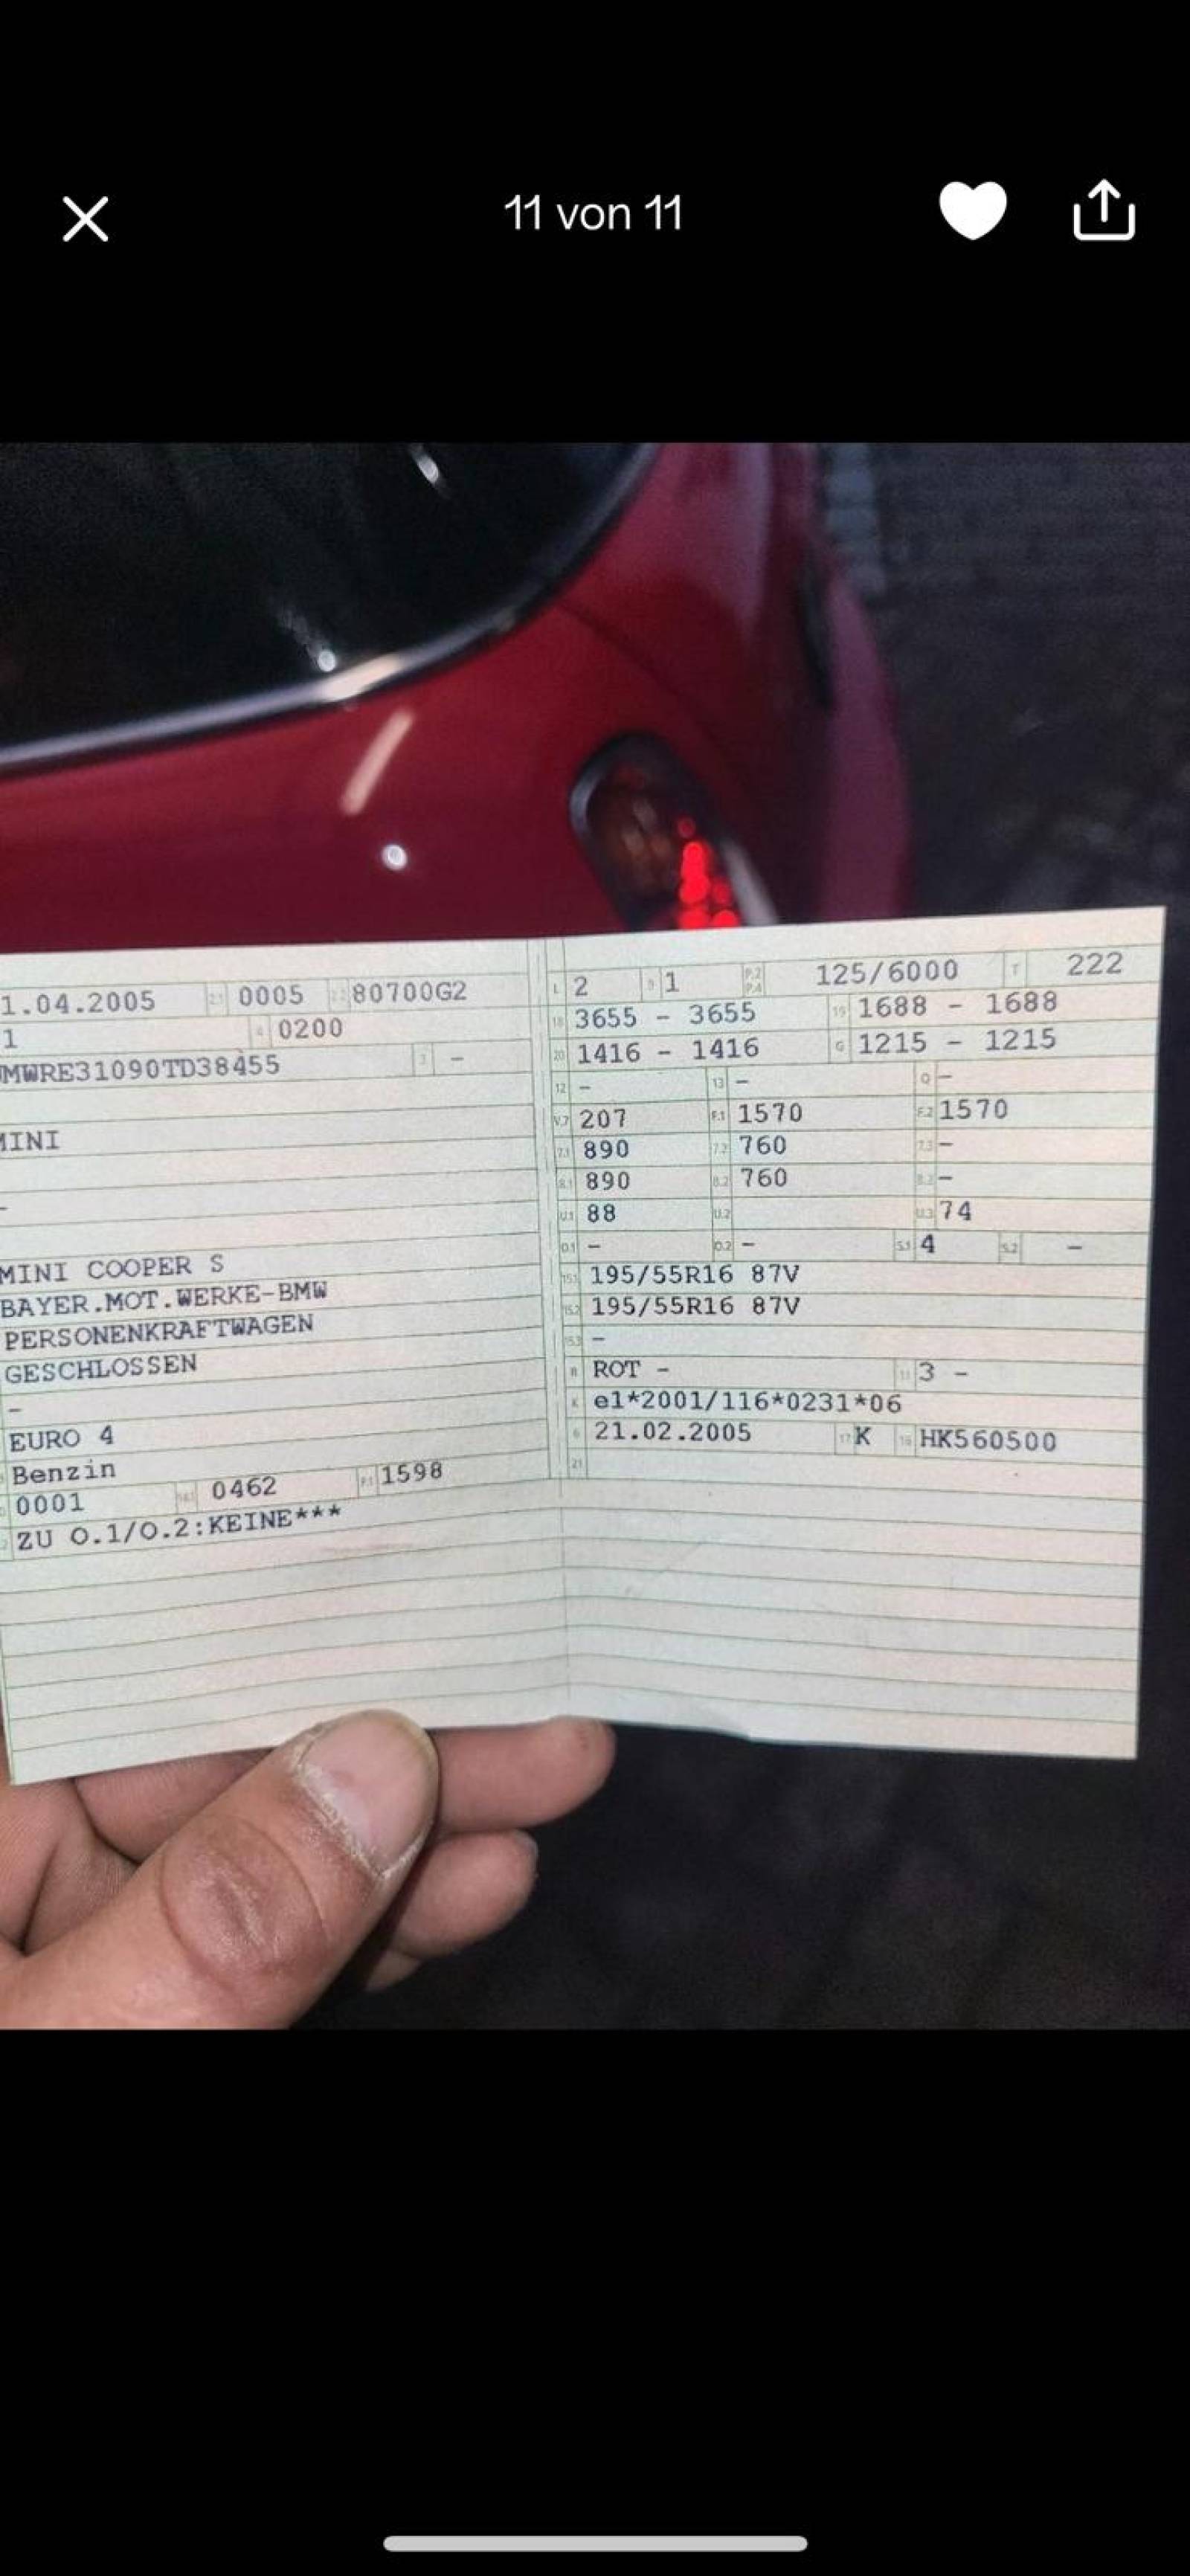 11 von 11
1.04.2005 2.1 0005 2.2 80700G2
1 4 0200
WMWRE31090TD38455 3 -
MINI
-
MINI COOPER S
BAYER.MOT.WERKE-BMW
PERSONENKRAFTWAGEN
GESCHLOSSEN
-
EURO 4
Benzin
0001 14.1 0462 P.1 1598
ZU O.1/O.2:KEINE***
L 2 9 1 P.2 P.4 125/6000 T 222
18 3655 - 3655 19 1688 - 1688
20 1416 - 1416 G 1215 - 1215
12 - 13 - Q -
V.7 207 F.1 1570 F.2 1570
7.1 890 7.2 760 7.3 -
8.1 890 8.2 760 8.3 -
U.1 88 U.2 U.3 74
O.1 - O.2 - S.1 4 S.2 -
15.1 195/55R16 87V
15.2 195/55R16 87V
15.3 -
R ROT - 11 3 -
K e1*2001/116*0231*06
6 21.02.2005 17 K 16 HK560500
21